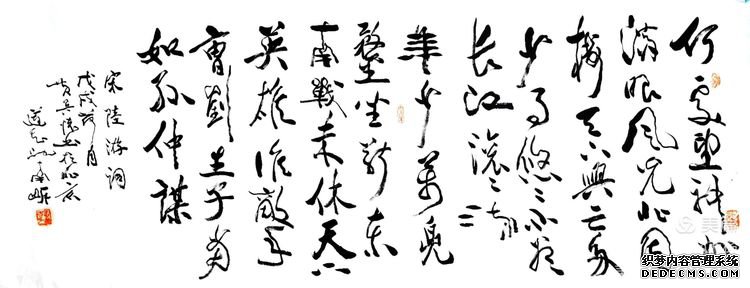 何處望神州
滿眼風光北固
楼千古興亡多
少事悠〻不尽
长江滚〻流
年少萬兜
鍪坐断东
南戰未休天下
英雄谁敵手
曹劉生子當
如孙仲謀
宋陸游词
戊戌
月
书於北京
美篇
织梦内容管理系统
DEDECMS.COM